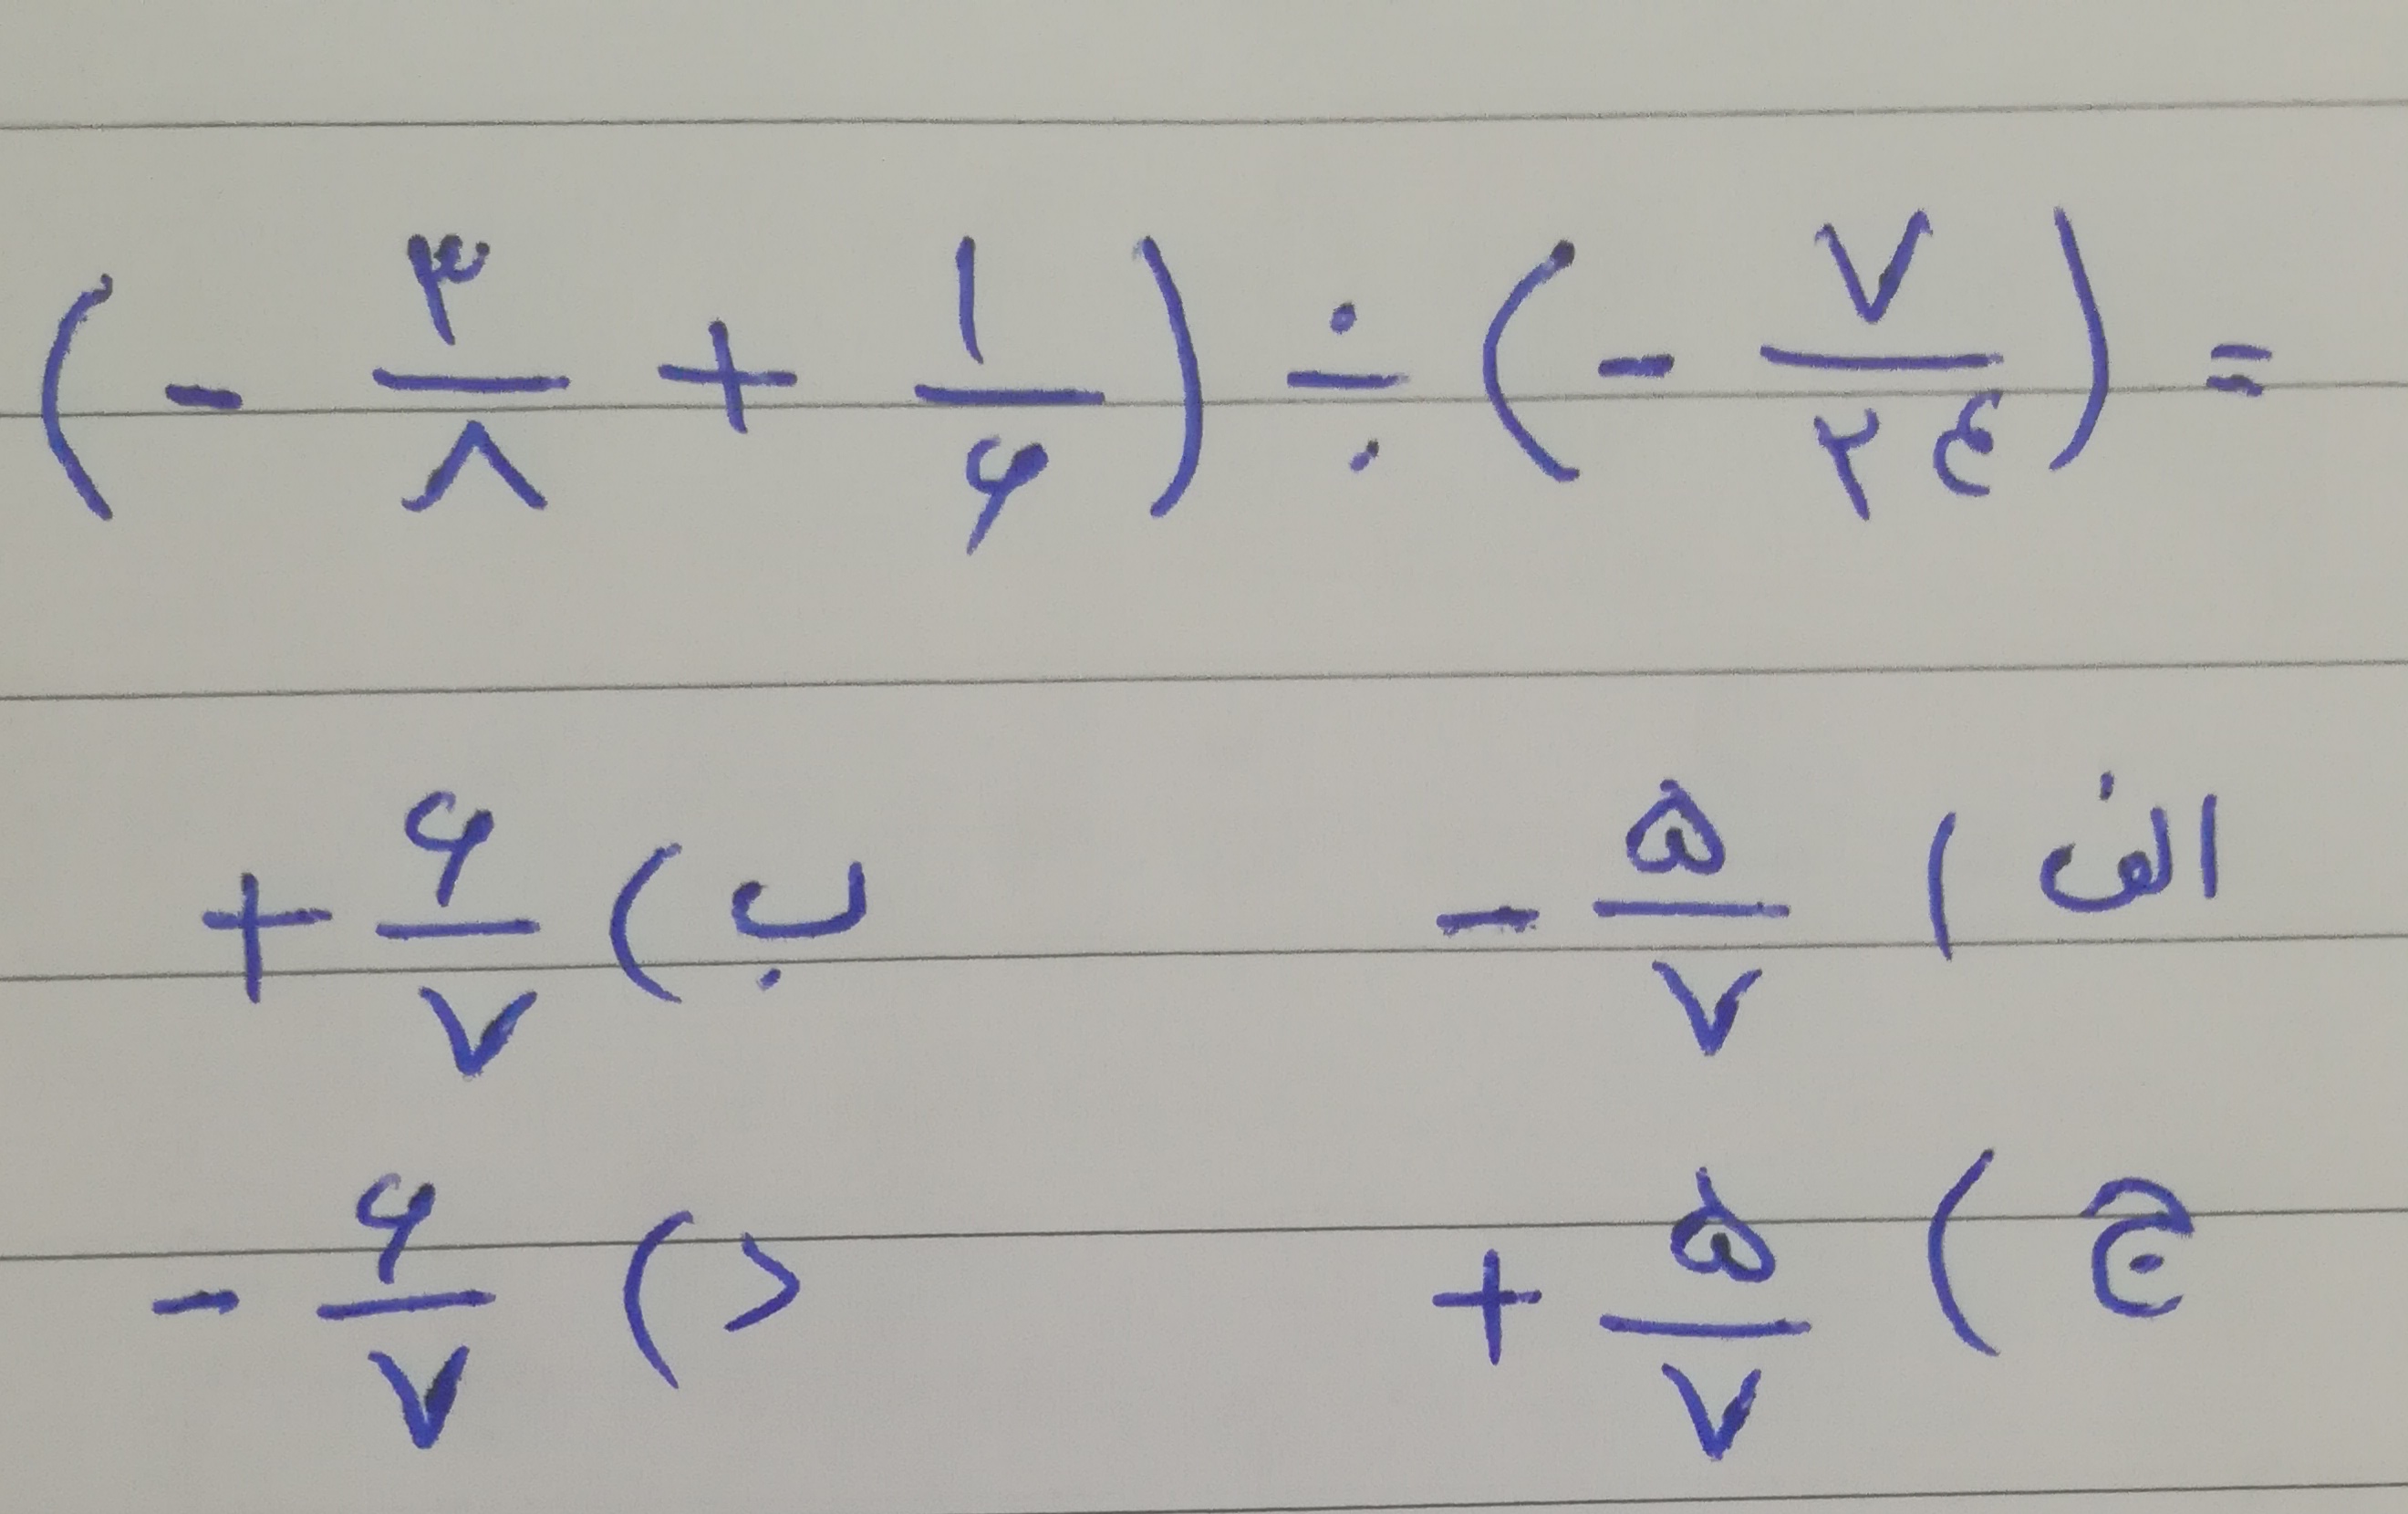 (- ۳/۸ + ۱/۶) ÷ (- ۷/۲۴) =
الف) - ۵/۷   ب) + ۶/۷
ج) + ۵/۷   د) - ۶/۷